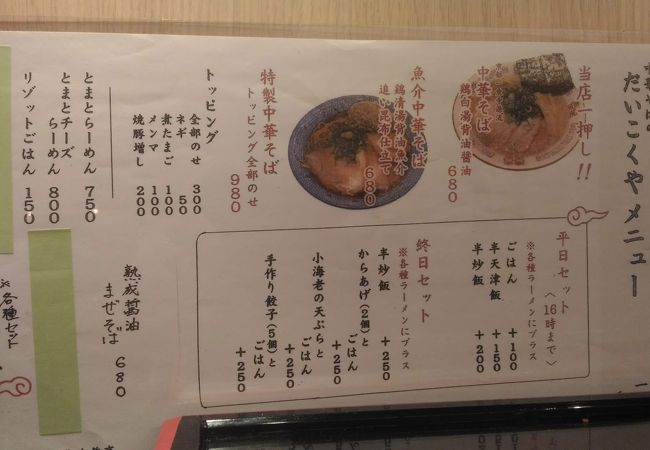 だいこくやメニュー
当店一押し!!
中華そば
鶏白湯背油醤油
680
魚介中華そば
鶏清湯背油魚介
追い昆布仕立て
680
特製中華そば
トッピング全部のせ
980
トッピング
全部のせ 300
ネギ 50
煮たまご 100
メンマ 100
焼豚増し 200
とまとらーめん 750
とまとチーズ
らーめん 800
リゾットごはん 150
平日セット
〈16時まで〉
※各種ラーメンにプラス
ごはん +100
半天津飯 +150
半炒飯 +200
終日セット
※各種ラーメンにプラス
半炒飯 +250
からあげ(2個)と
ごはん +250
小海老の天ぷらと
ごはん +250
手作り餃子(5個)と
ごはん +250
熟成醤油
まぜそば
680
※各種セット